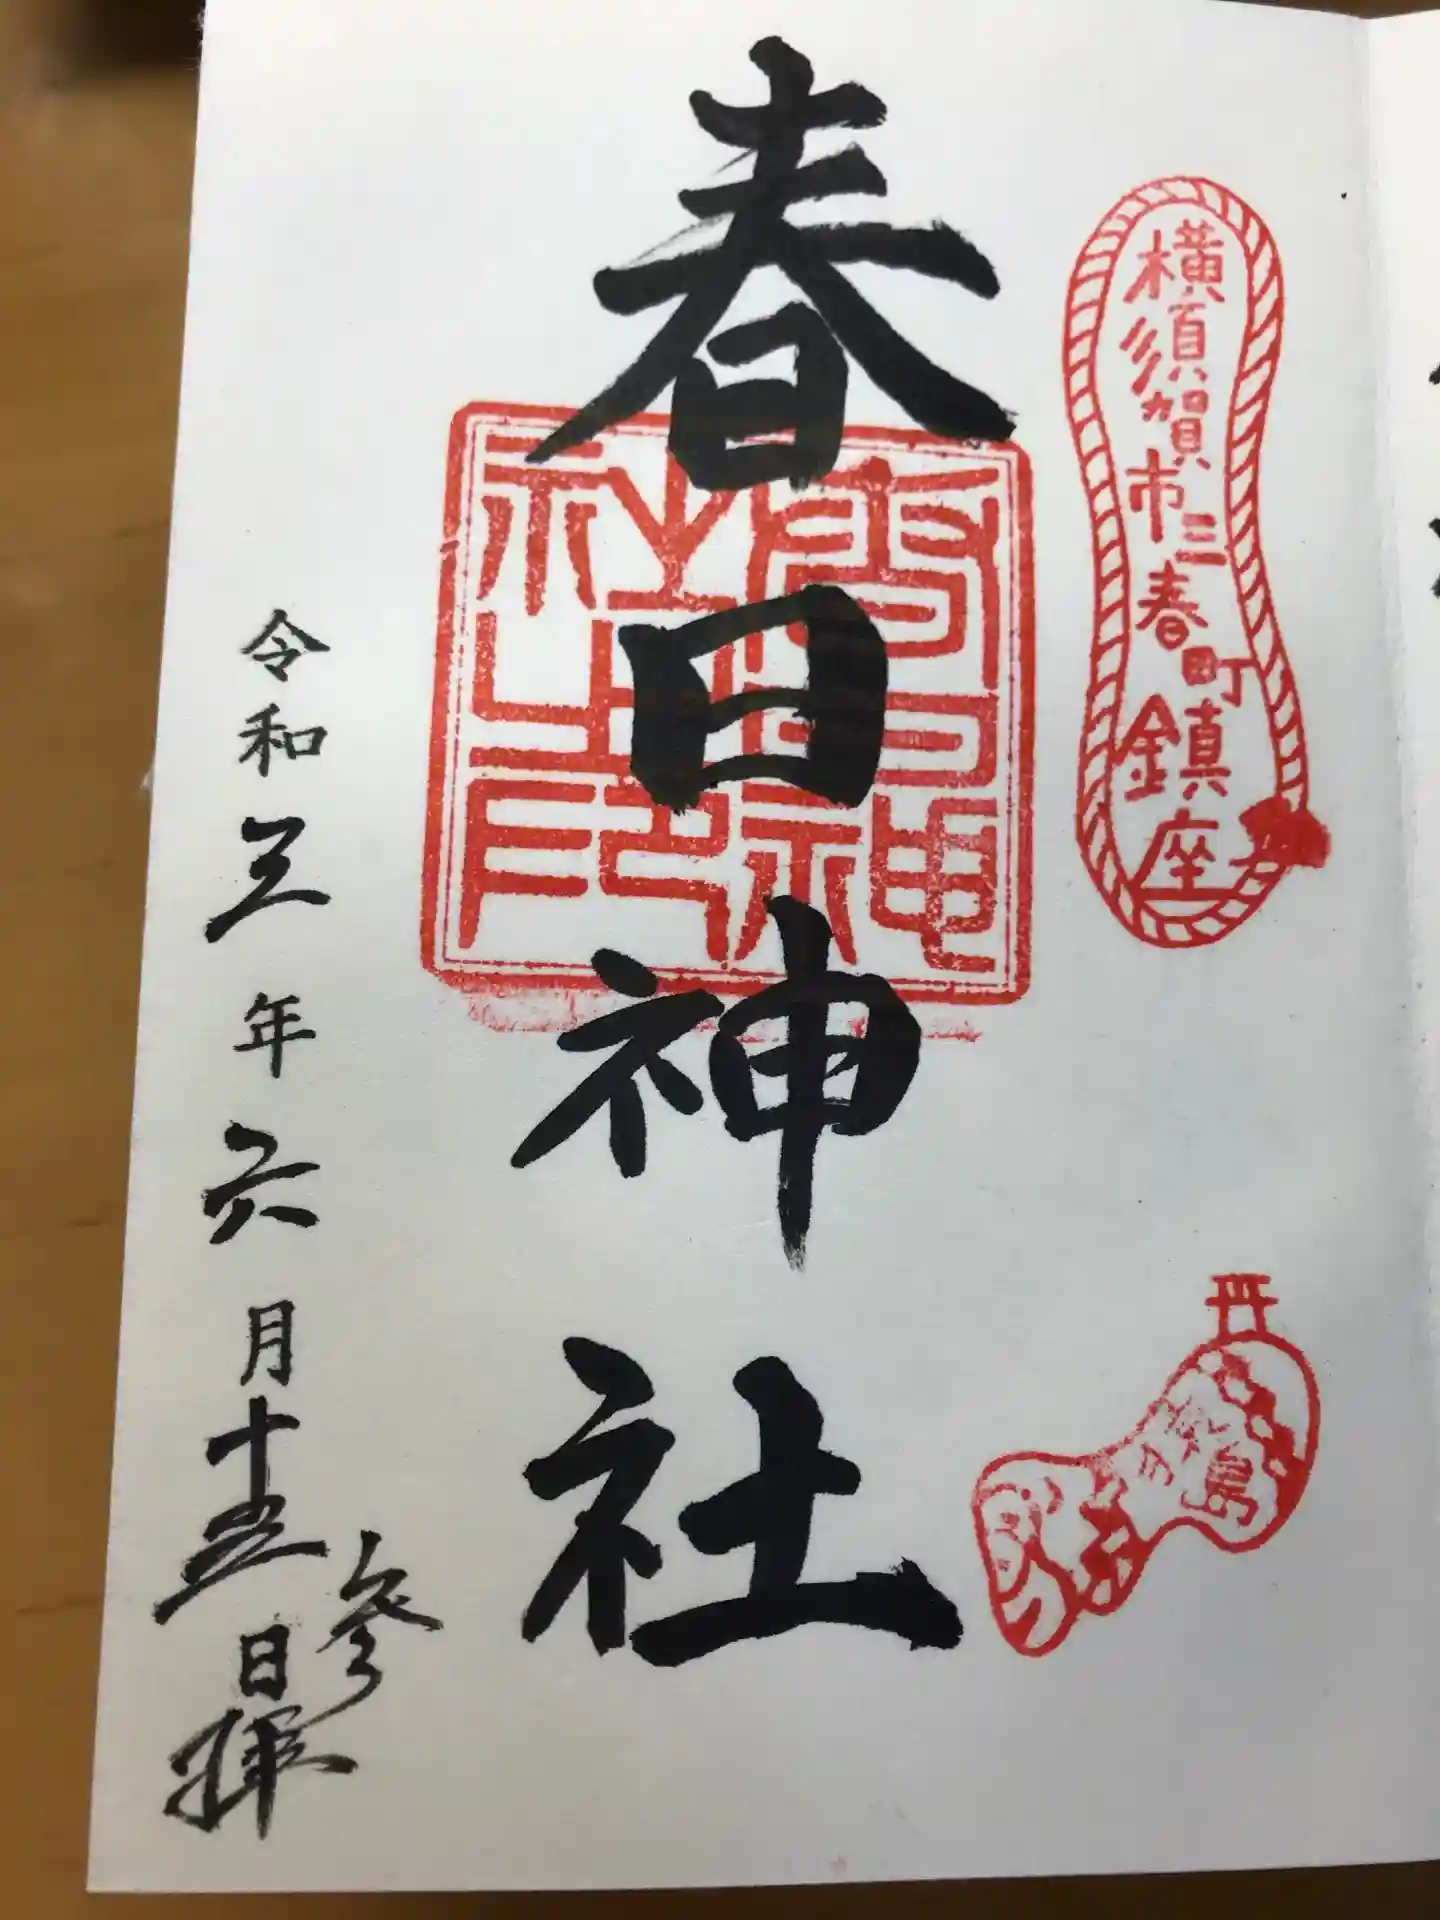 横須賀市三春町鎮座
春日神社
春日神社之印
猿島
令和三年六月十五日
参拝